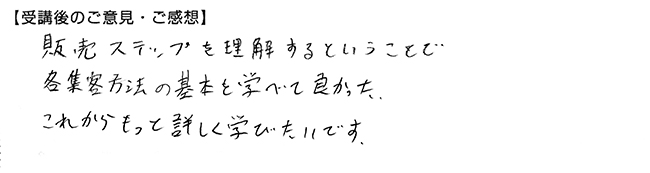 【受講後のご意見・ご感想】
販売ステップを理解するということで
各集客方法の基本を学べて良かった.
これからもっと詳しく学びたいです.